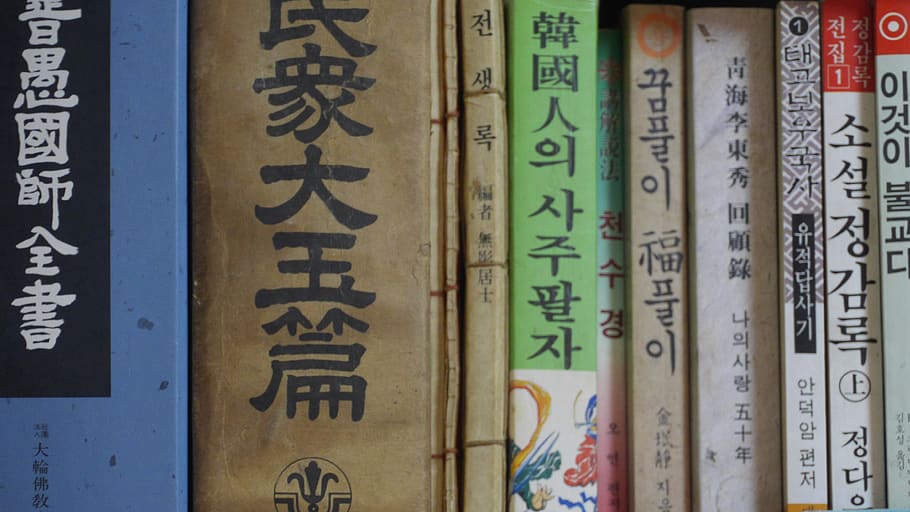 普愚國師全書
社團法人 大輪佛敎
民衆大玉篇
전생록
編者 無影居士
韓國人의 사주팔자
천수경
꿈풀이 福풀이
靑海 李東秀 回顧錄
나의 사랑 五十年
1 태고보우국사
유적답사기
안덕암 편저
정감록 전집 1
소설 정감록 上
이것이 불교다